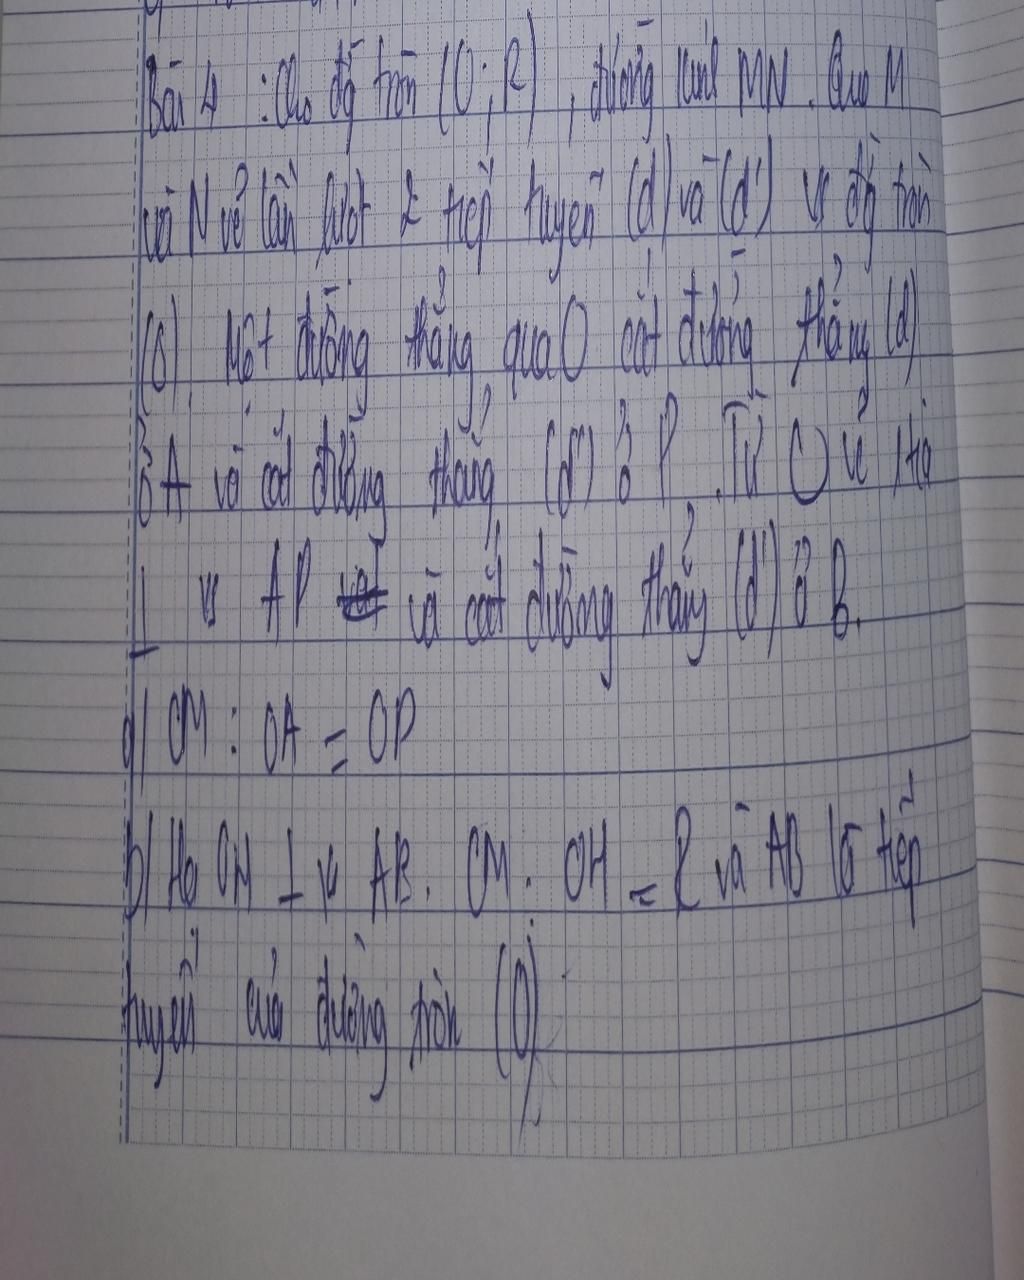 Bài 4 : Cho đg tròn (O ; R) , đường kính MN . Qua M
và N vẽ lần lượt 2 tiếp tuyến (d) và (d') vs đg tròn
(O). Một đường thẳng qua O cắt đường thẳng (d)
ở A và cắt đường thẳng (d') ở P . Từ O vẽ tia
⊥ vs AP và cắt đường thẳng (d') ở B.
a) CM : OA = OP
b) Hạ OH ⊥ vs AB. CM . OH = R và AB là tiếp
tuyến của đường tròn (O)